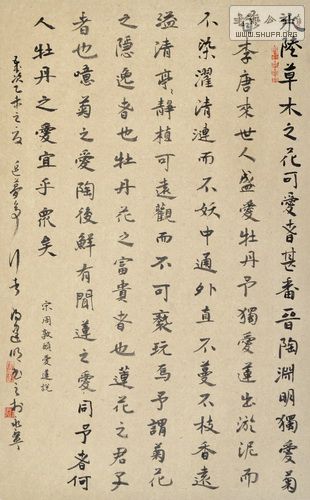 水陸草木之花可愛者甚番晉陶淵明獨愛菊
自李唐來世人盛愛牡丹予獨愛蓮出淤泥而
不染濯清漣而不妖中通外直不蔓不枝香遠
溢清亭々靜植可遠觀而不可褻玩焉予謂菊花
之隱逸者也牡丹花之富貴者也蓮花之君子
者也噫菊之愛陶後鮮有聞蓮之愛同予者何
人牡丹之愛宜乎眾矣
宋周敦頤愛蓮說
歲次乙未之夏
WWW.SHUFA.ORG